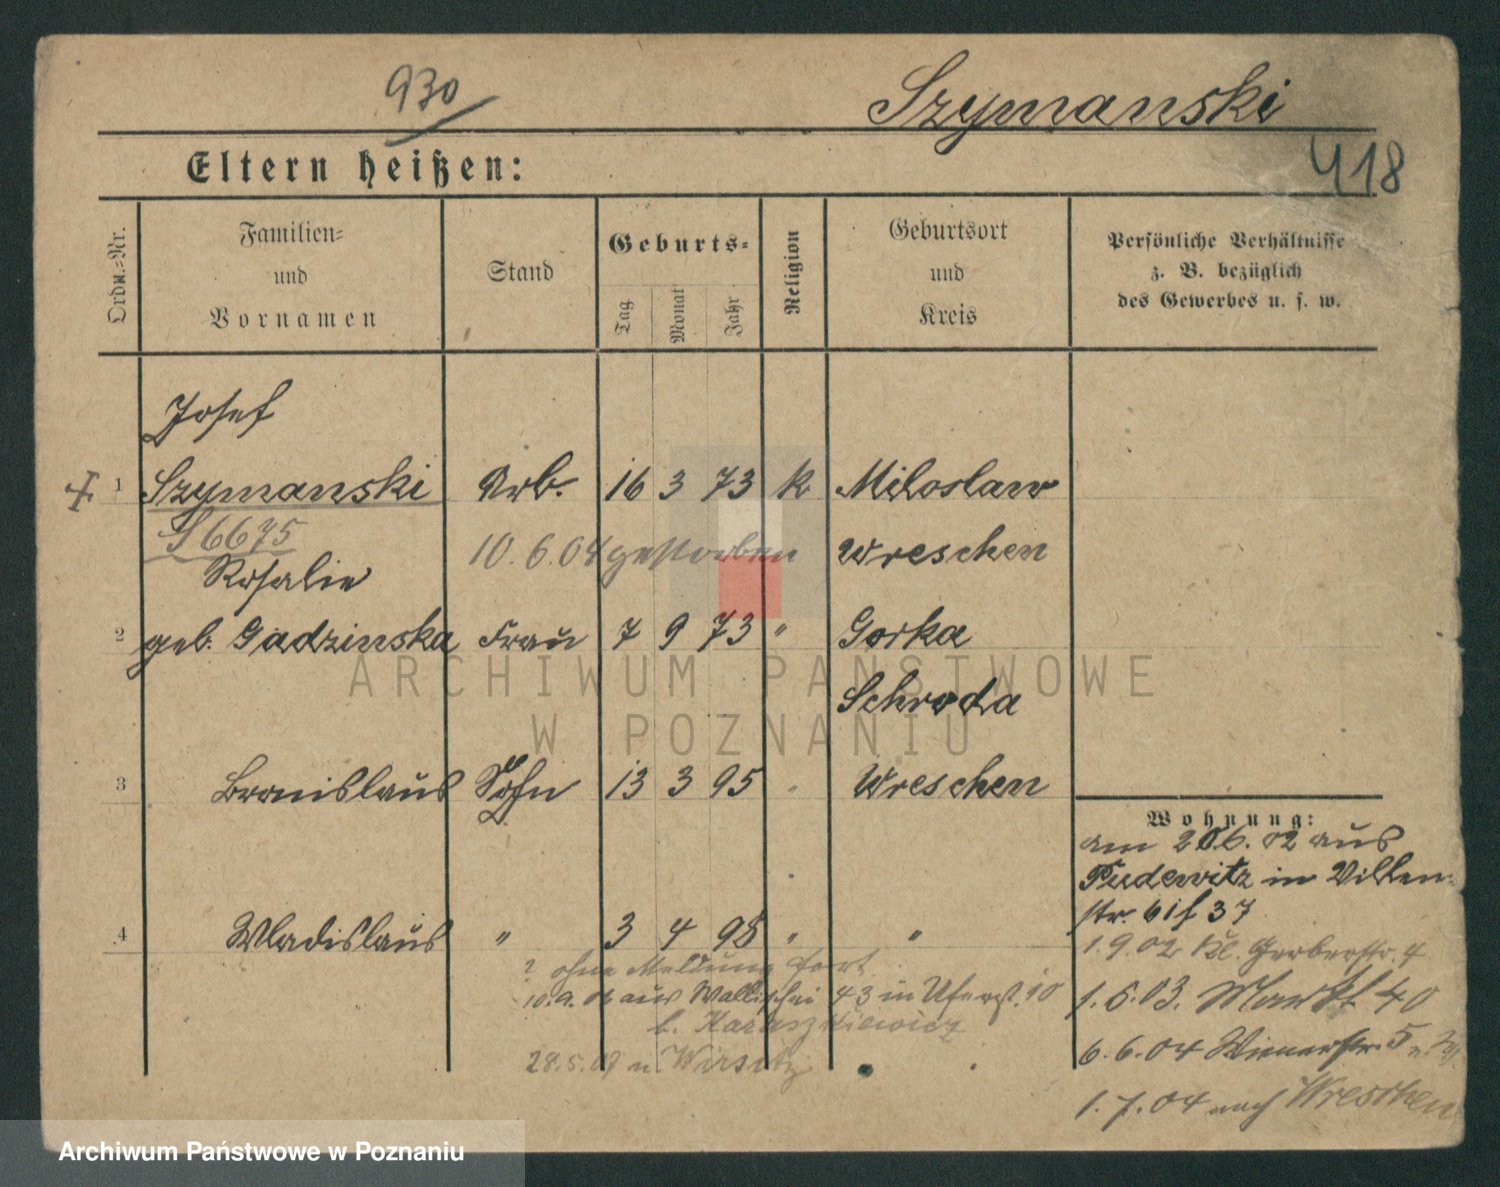 930
Szymanski
418
Eltern heißen:
Ordn.=Nr.
Familien=
und
Vornamen
Stand
Geburts=
Tag
Monat
Jahr
Religion
Geburtsort
und
Kreis
Persönliche Verhältnisse
z. B. bezüglich
des Gewerbes u. s. w.
Josef
1 Szymanski Arb. 16 3 73 k. Miloslaw
S 6675 10.6.04 gestorben Wreschen
Rosalie
2 geb. Gadzinska Frau 7 9 73 " Gorka
Schroda
3 Bronislaus Sohn 13 3 95 Wreschen
4 Wladislaus " 3 4 98 " "
Wohnung:
am 20.6.02 aus
Pudewitz in Villen=
str. 37
1.9.02 Kl. Gerberstr. 4
1.5.03. Markt 40
6.6.04 Wienerstr. 5
1.7.04 nach Wreschen
2 ohne Meldung fort
10.9. aus Wallischei 43 in Uferst. 10
b. Karaszkiewicz
28.5.09 n. Wirsitz
ARCHIWUM PAŃSTWOWE
W POZNANIU
Archiwum Państwowe w Poznaniu